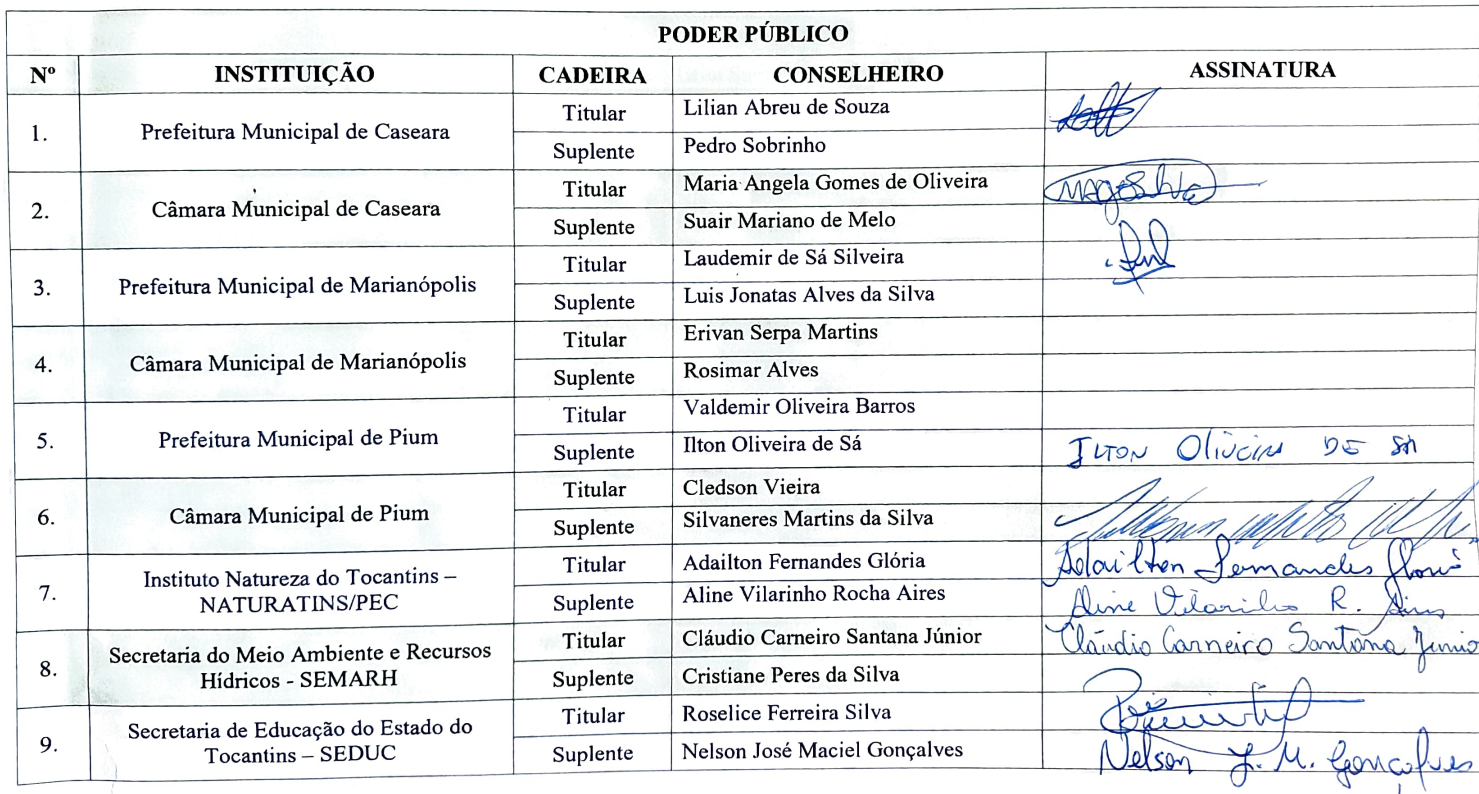 PODER PÚBLICO
Nº INSTITUIÇÃO CADEIRA CONSELHEIRO ASSINATURA
1. Prefeitura Municipal de Caseara
Titular Lilian Abreu de Souza
Suplente Pedro Sobrinho
2. Câmara Municipal de Caseara
Titular Maria Angela Gomes de Oliveira
Suplente Suair Mariano de Melo
3. Prefeitura Municipal de Marianópolis
Titular Laudemir de Sá Silveira
Suplente Luis Jonatas Alves da Silva
4. Câmara Municipal de Marianópolis
Titular Erivan Serpa Martins
Suplente Rosimar Alves
5. Prefeitura Municipal de Pium
Titular Valdemir Oliveira Barros
Suplente Ilton Oliveira de Sá ILTON OliveirA DE SA
6. Câmara Municipal de Pium
Titular Cledson Vieira
Suplente Silvaneres Martins da Silva
7. Instituto Natureza do Tocantins –
NATURATINS/PEC
Titular Adailton Fernandes Glória Adailton Fernandes Gloria
Suplente Aline Vilarinho Rocha Aires Aline Vilarinho R. Aires
8. Secretaria do Meio Ambiente e Recursos
Hídricos - SEMARH
Titular Cláudio Carneiro Santana Júnior Cláudio Carneiro Santana Junio
Suplente Cristiane Peres da Silva
9. Secretaria de Educação do Estado do
Tocantins – SEDUC
Titular Roselice Ferreira Silva
Suplente Nelson José Maciel Gonçalves Nelson J. M. Gonçalves